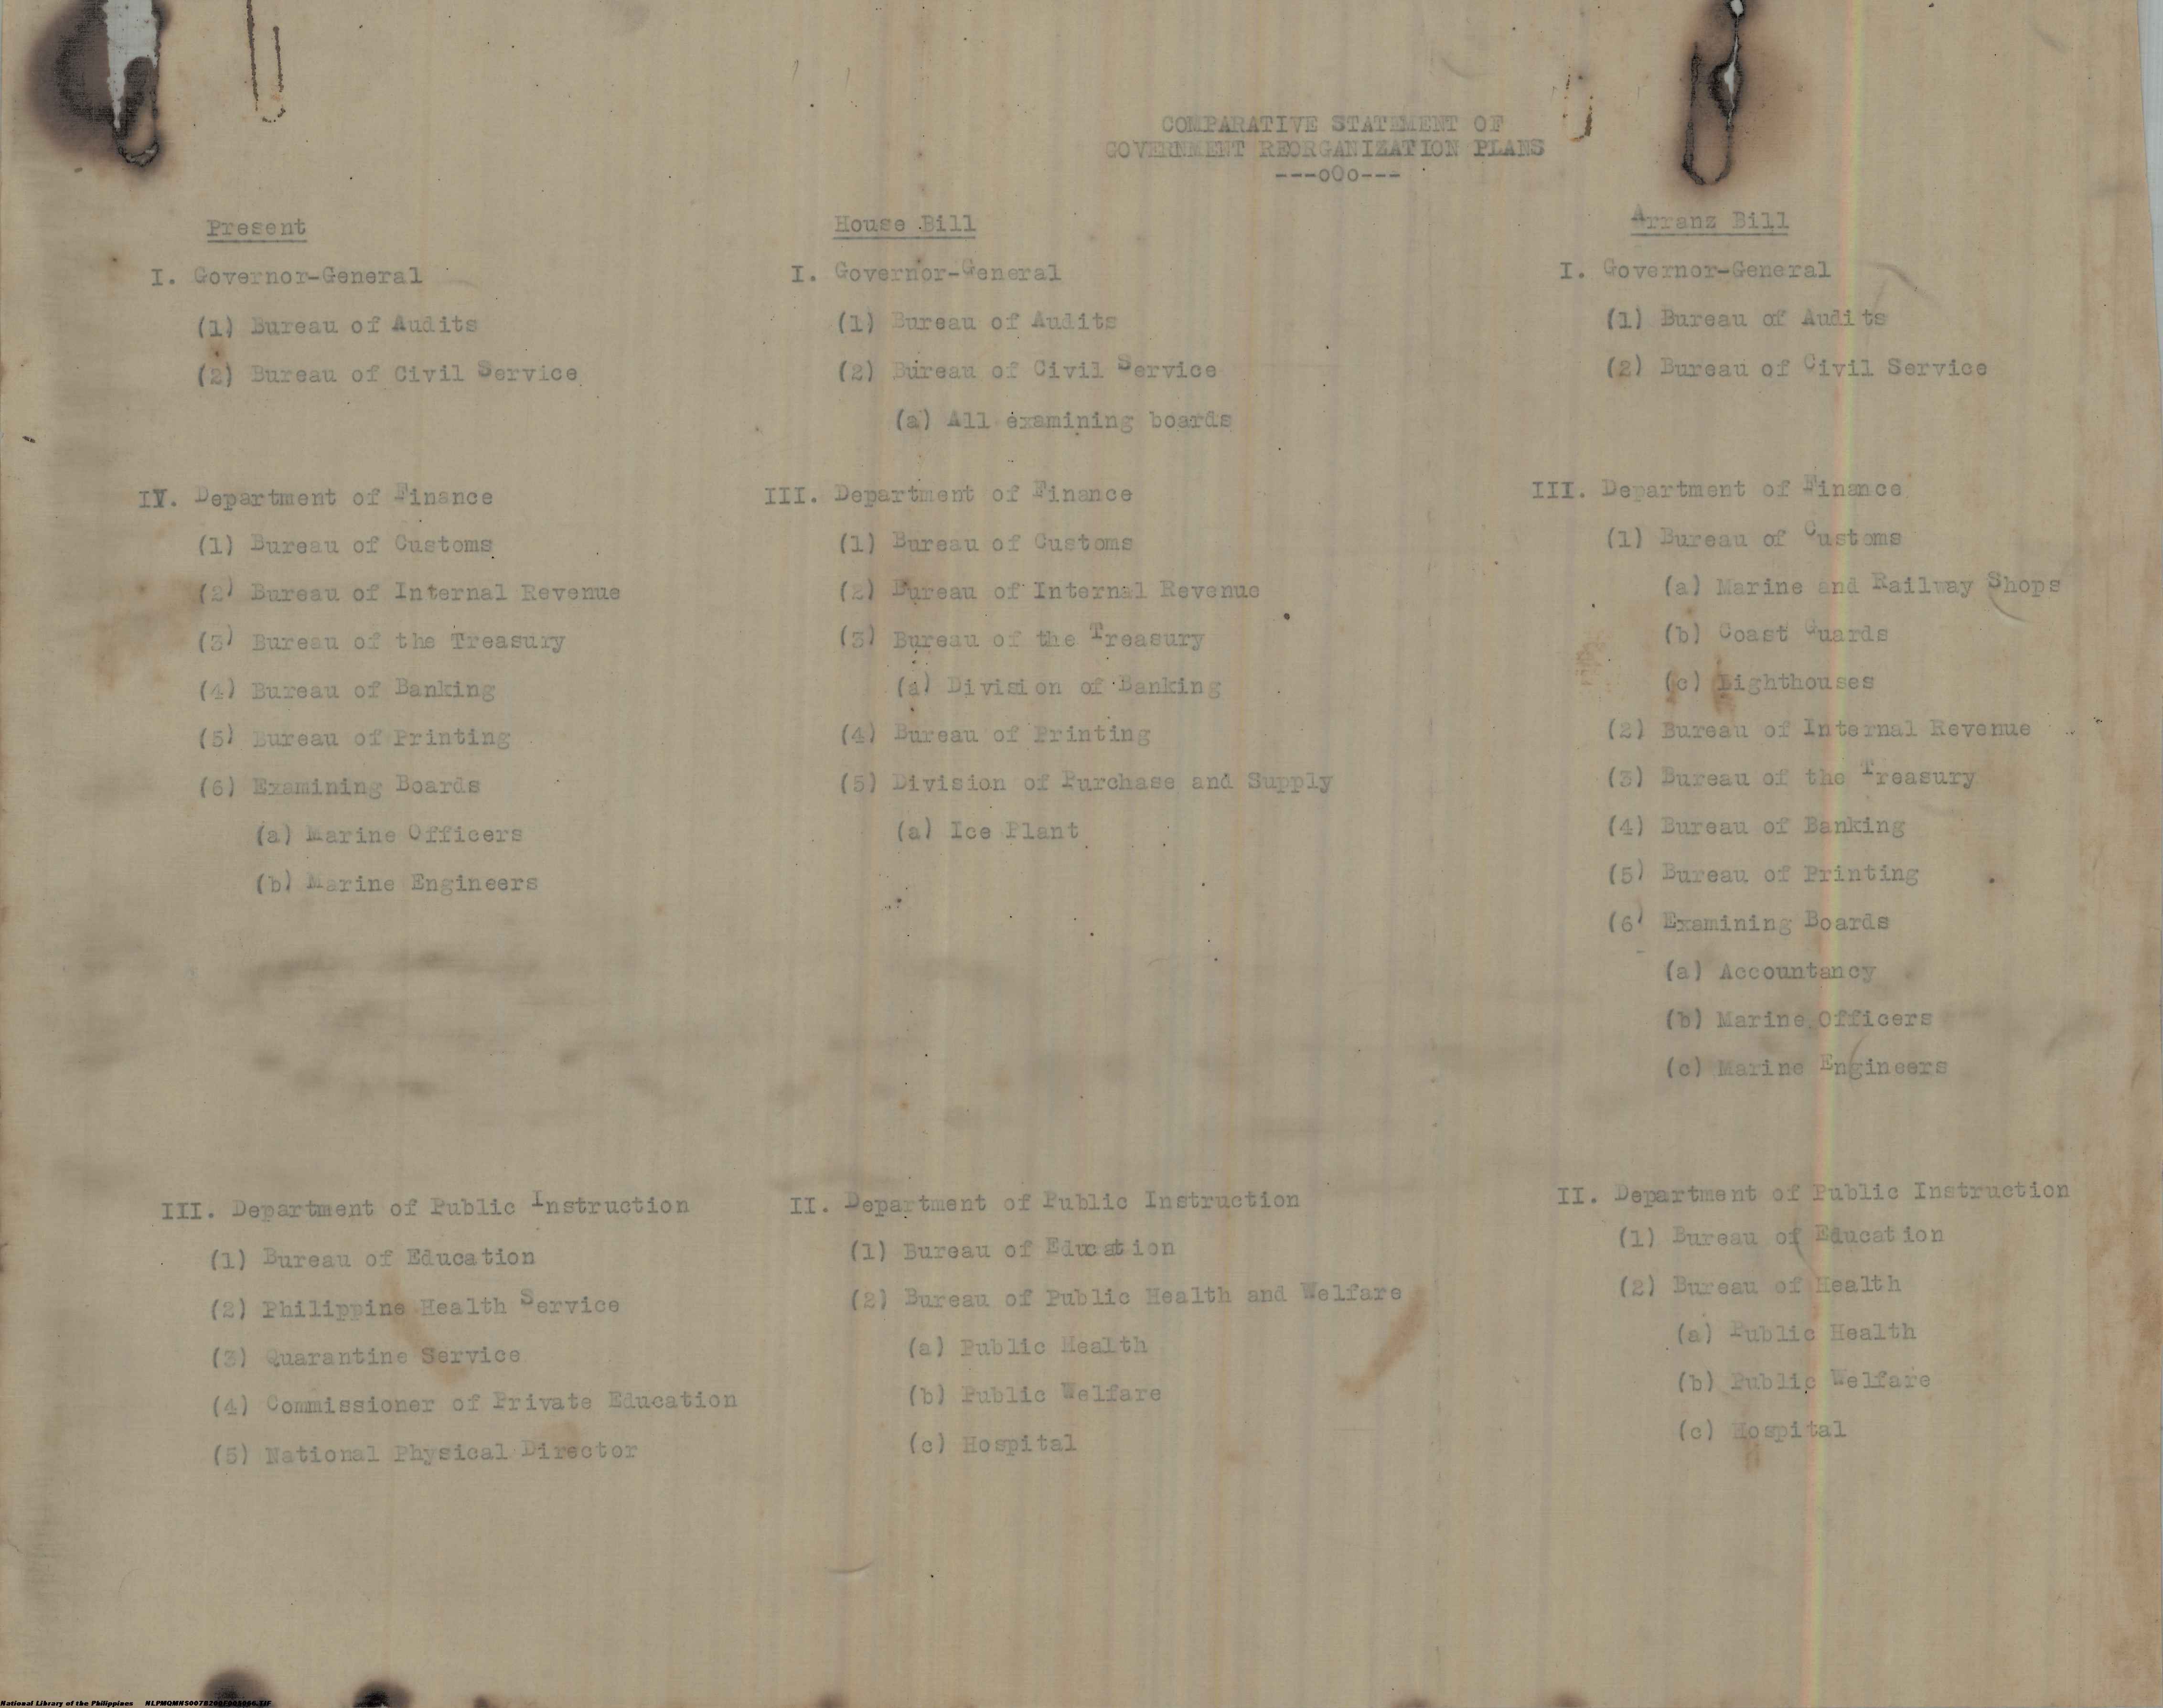 COMPARATIVE STATEMENT OF
GOVERNMENT REORGANIZATION PLANS
---oOo---
Present
I. Governor-General
(1) Bureau of Audits
(2) Bureau of Civil Service
IV. Department of Finance
(1) Bureau of Customs
(2) Bureau of Internal Revenue
(3) Bureau of the Treasury
(4) Bureau of Banking
(5) Bureau of Printing
(6) Examining Boards
(a) Marine Officers
(b) Marine Engineers
III. Department of Public Instruction
(1) Bureau of Education
(2) Philippine Health Service
(3) Quarantine Service
(4) Commissioner of Private Education
(5) National Physical Director
House Bill
I. Governor-General
(1) Bureau of Audits
(2) Bureau of Civil Service
(a) All examining boards
III. Department of Finance
(1) Bureau of Customs
(2) Bureau of Internal Revenue
(3) Bureau of the Treasury
(a) Division of Banking
(4) Bureau of Printing
(5) Division of Purchase and Supply
(a) Ice Plant
II. Department of Public Instruction
(1) Bureau of Education
(2) Bureau of Public Health and Welfare
(a) Public Health
(b) Public Welfare
(c) Hospital
Arranz Bill
I. Governor-General
(1) Bureau of Audits
(2) Bureau of Civil Service
III. Department of Finance
(1) Bureau of Customs
(a) Marine and Railway Shops
(b) Coast Guards
(c) Lighthouses
(2) Bureau of Internal Revenue
(3) Bureau of the Treasury
(4) Bureau of Banking
(5) Bureau of Printing
(6) Examining Boards
(a) Accountancy
(b) Marine Officers
(c) Marine Engineers
II. Department of Public Instruction
(1) Bureau of Education
(2) Bureau of Health
(a) Public Health
(b) Public Welfare
(c) Hospital
National Library of the Philippines